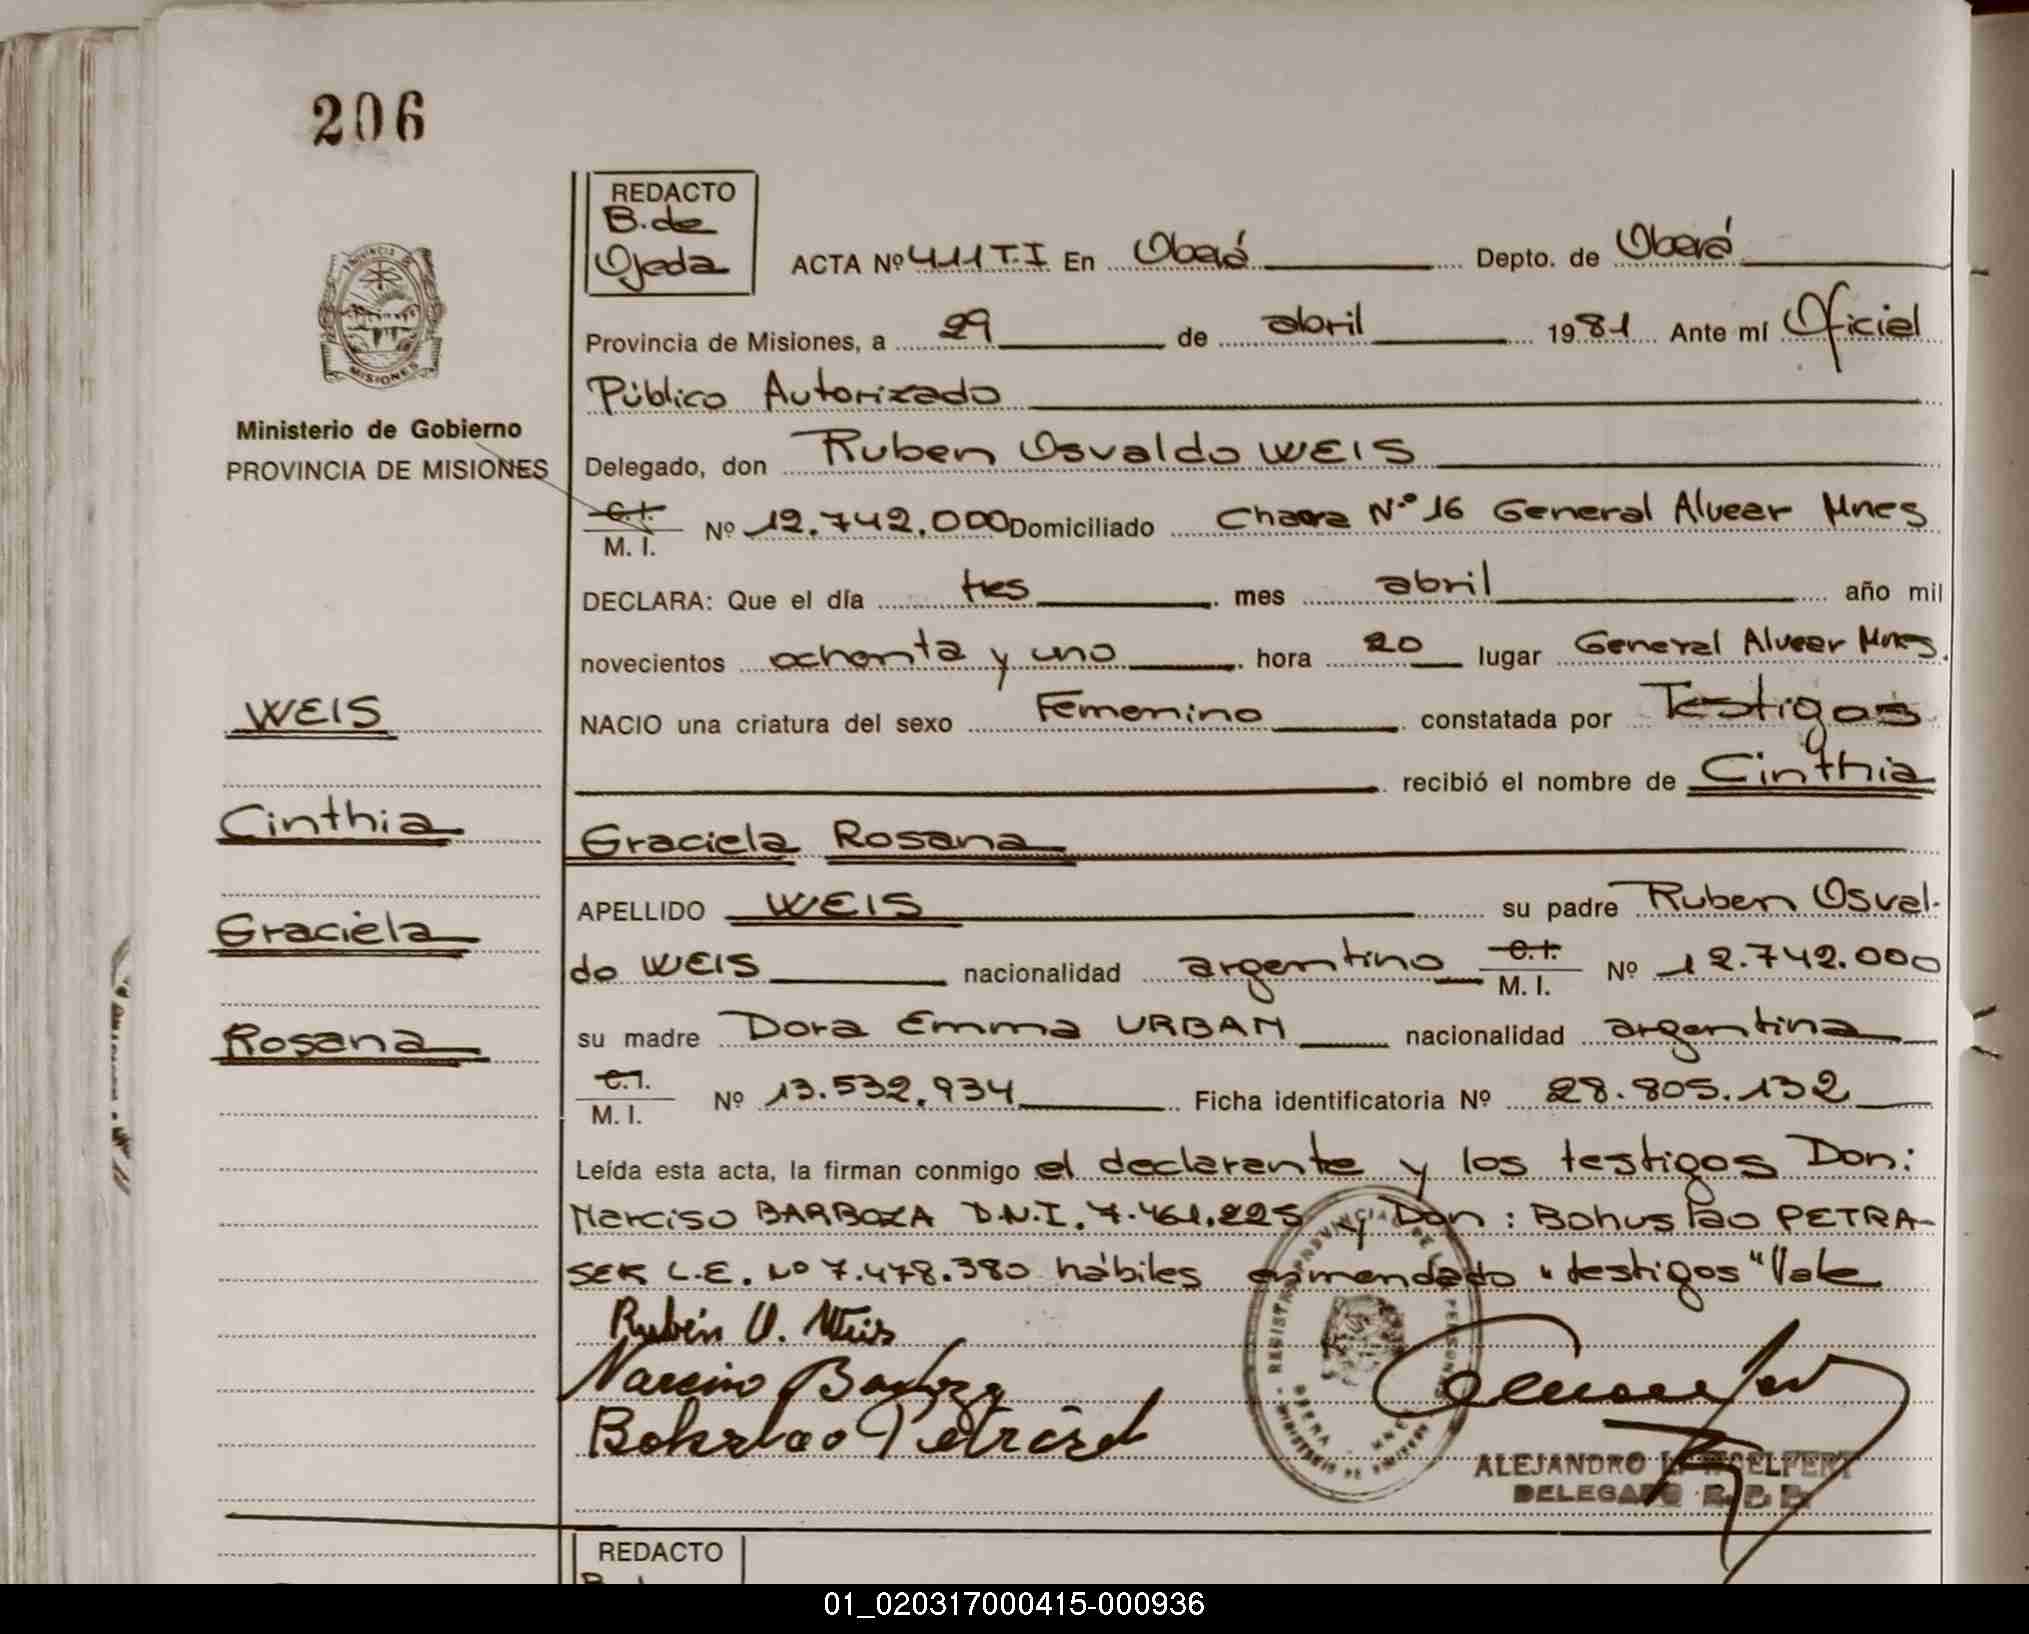 206
REDACTO
B. de
Ojeda
ACTA Nº 411 T.I En Oberá Depto. de Oberá
Provincia de Misiones, a 29 de abril 1981 Ante mí Oficial
Público Autorizado
Ministerio de Gobierno
PROVINCIA DE MISIONES
MISIONES
Delegado, don Ruben Osvaldo WEIS
C.I.
M. I. Nº 12.742.000 Domiciliado Chacra Nº 16 General Alvear Mnes
DECLARA: Que el día tres mes abril año mil
novecientos ochenta y uno hora 20 lugar General Alvear Mnes.
WEIS
NACIO una criatura del sexo Femenino constatada por Testigos
recibió el nombre de Cinthia
Cinthia
Graciela Rosana
Graciela
APELLIDO WEIS su padre Ruben Osval-
do WEIS nacionalidad argentino C.I. M. I. Nº 12.742.000
Rosana
su madre Dora Emma URBAN nacionalidad argentina
C.I.
M. I. Nº 13.532.934 Ficha identificatoria Nº 28.805.132
Leída esta acta, la firman conmigo el declarante y los testigos Don:
Narciso BARBOZA D.N.I. 7.461.225 y Don: Bohuslao PETRA-
SEK L.E. Nº 7.478.380 hábiles enmendado "testigos" Vale
Rubén O. Weis
Narciso Barboza
ALEJANDRO
DELEGADO
REDACTO
01_020317000415-000936